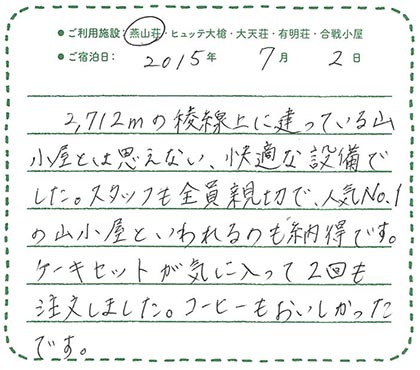 ●ご利用施設:燕山荘・ヒュッテ大槍・大天荘・有明荘・合戦小屋
●ご宿泊日:2015年 7月 2日
2,712mの稜線上に建っている山
小屋とは思えない、快適な設備で
した。スタッフも全員親切で、人気No.1
の山小屋といわれるのも納得です。
ケーキセットが気に入って2回も
注文しました。コーヒーもおいしかった
です。